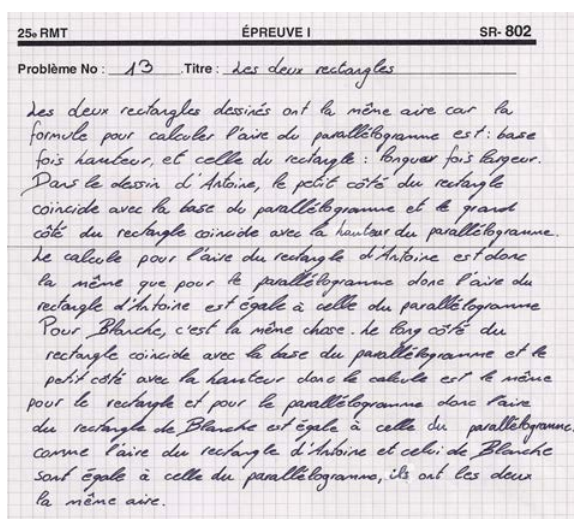 25e RMT ÉPREUVE I SR- 802
Problème No : 13 Titre : Les deux rectangles
Les deux rectangles dessinés ont la même aire car la
formule pour calculer l'aire du parallélogramme est : base
fois hauteur, et celle du rectangle : longueur fois largeur.
Dans le dessin d'Antoine, le petit côté du rectangle
coïncide avec la base du parallélogramme et le grand
côté du rectangle coïncide avec la hauteur du parallélogramme.
Le calcule pour l'aire du rectangle d'Antoine est donc
la même que pour le parallélogramme donc l'aire du
rectangle d'Antoine est égale à celle du parallélogramme
Pour Blanche, c'est la même chose. Le long côté du
rectangle coïncide avec la base du parallélogramme et le
petit côté avec la hauteur donc le calcule est le même
pour le rectangle et pour le parallélogramme donc l'aire
du rectangle de Blanche est égale à celle du parallélogramme.
comme l'aire du rectangle d'Antoine et celui de Blanche
sont égale à celle du parallélogramme, ils ont les deux
la même aire.